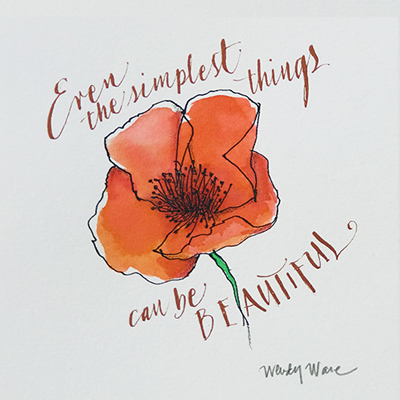 Even
the simplest things
can be
BEAUTIFUL
Wendy Ware